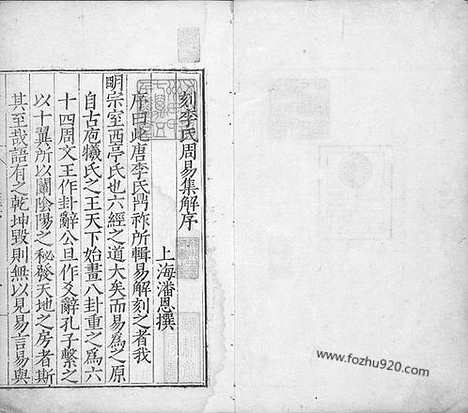 刻李氏周易集解序
上海潘恩撰
序曰此唐李氏鼎祚所輯易解刻之者我
明宗室西亭氏也六經之道大矣而易爲之原
自古庖犧氏之王天下始畫八卦重之爲六
十四周文王作卦辭公旦作爻辭孔子繫之
以十翼所以闡陰陽之秘發天地之房者斯
其至哉語有之乾坤毀則無以見易言易與
www.fozhu920.com